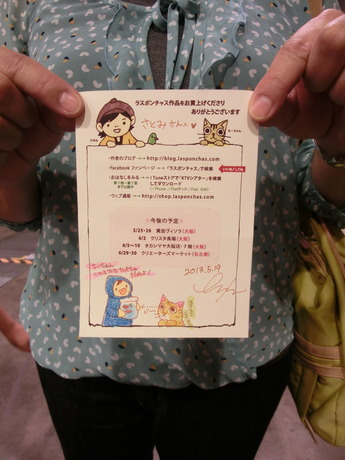 ラスポンチャス作品をお買上げくださり
ありがとうございます
さとみさんへ♥
・作者のブログ → http://blog.lasponchas.com
・facebook ファンページ →「ラスポンチャス」で検索
・おはなしをみる → iTuneストアで「KTVシアター」を検索
してダウンロード
(iPhone / iPodタッチ / iPad 対応)
・ウェブ通販 → http://shop.lasponchas.com
☆今後の予定☆
5/25-26
6/2 クリスタ長堀(大阪)
6/5~18 タカシマヤ大阪店・7階(大阪)
6/29-30 クリエーターズマーケット(名古屋)
2013.5.19